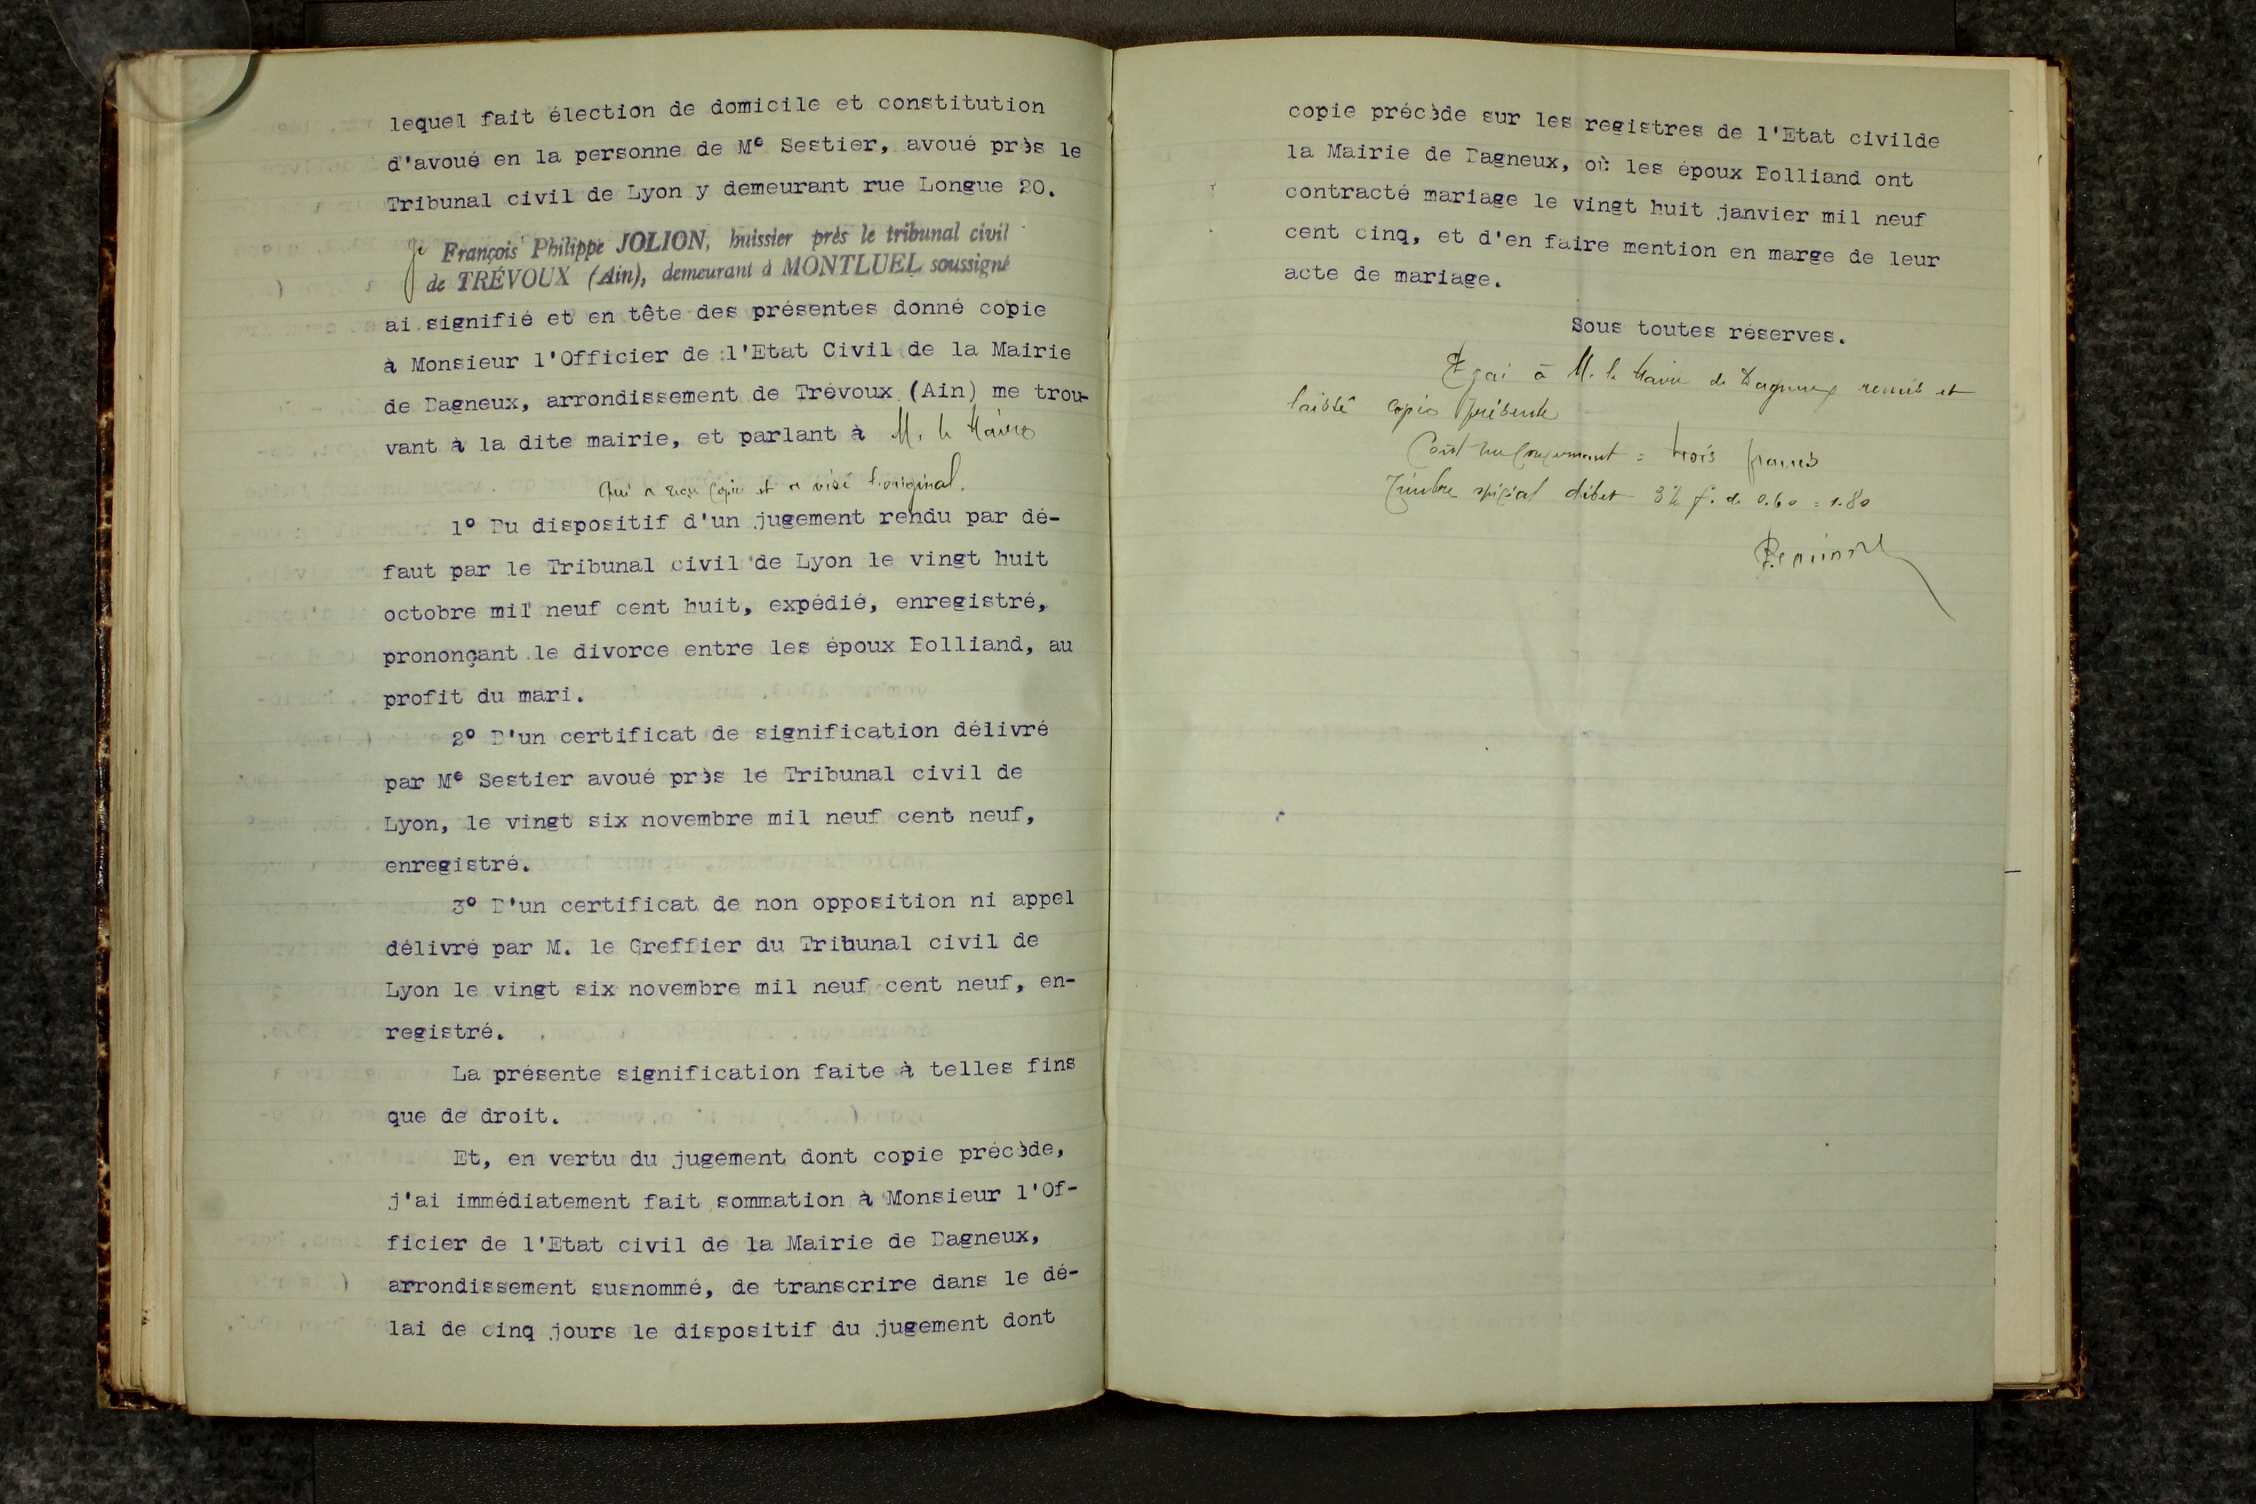 lequel fait élection de domicile et constitution
d'avoué en la personne de Me Sestier, avoué près le
Tribunal civil de Lyon y demeurant rue Longue 20.
Je François Philippe JOLION, huissier près le tribunal civil
de TRÉVOUX (Ain), demeurant à MONTLUEL soussigné
ai signifié et en tête des présentes donné copie
à Monsieur l'Officier de l'Etat Civil de la Mairie
de Dagneux, arrondissement de Trévoux (Ain) me trou-
vant à la dite mairie, et parlant à M. le Maire
qui a reçu copie et a visé l'original.
1º Du dispositif d'un jugement rendu par dé-
faut par le Tribunal civil de Lyon le vingt huit
octobre mil neuf cent huit, expédié, enregistré,
prononçant le divorce entre les époux Bolliand, au
profit du mari.
2º D'un certificat de signification délivré
par Me Sestier avoué près le Tribunal civil de
Lyon, le vingt six novembre mil neuf cent neuf,
enregistré.
3º D'un certificat de non opposition ni appel
délivré par M. le Greffier du Tribunal civil de
Lyon le vingt six novembre mil neuf cent neuf, en-
registré.
La présente signification faite à telles fins
que de droit.
Et, en vertu du jugement dont copie précède,
j'ai immédiatement fait sommation à Monsieur l'Of-
ficier de l'Etat civil de la Mairie de Dagneux,
arrondissement susnommé, de transcrire dans le dé-
lai de cinq jours le dispositif du jugement dont
copie précède sur les registres de l'Etat civilde
la Mairie de Dagneux, où les époux Bolliand ont
contracté mariage le vingt huit janvier mil neuf
cent cinq, et d'en faire mention en marge de leur
acte de mariage.
Sous toutes réserves.
Et j'ai à M. le Maire de Dagneux remis et
laissé copie présente
Coût = trois francs
Timbre spécial débet 3 f. de 0.60 = 1.80